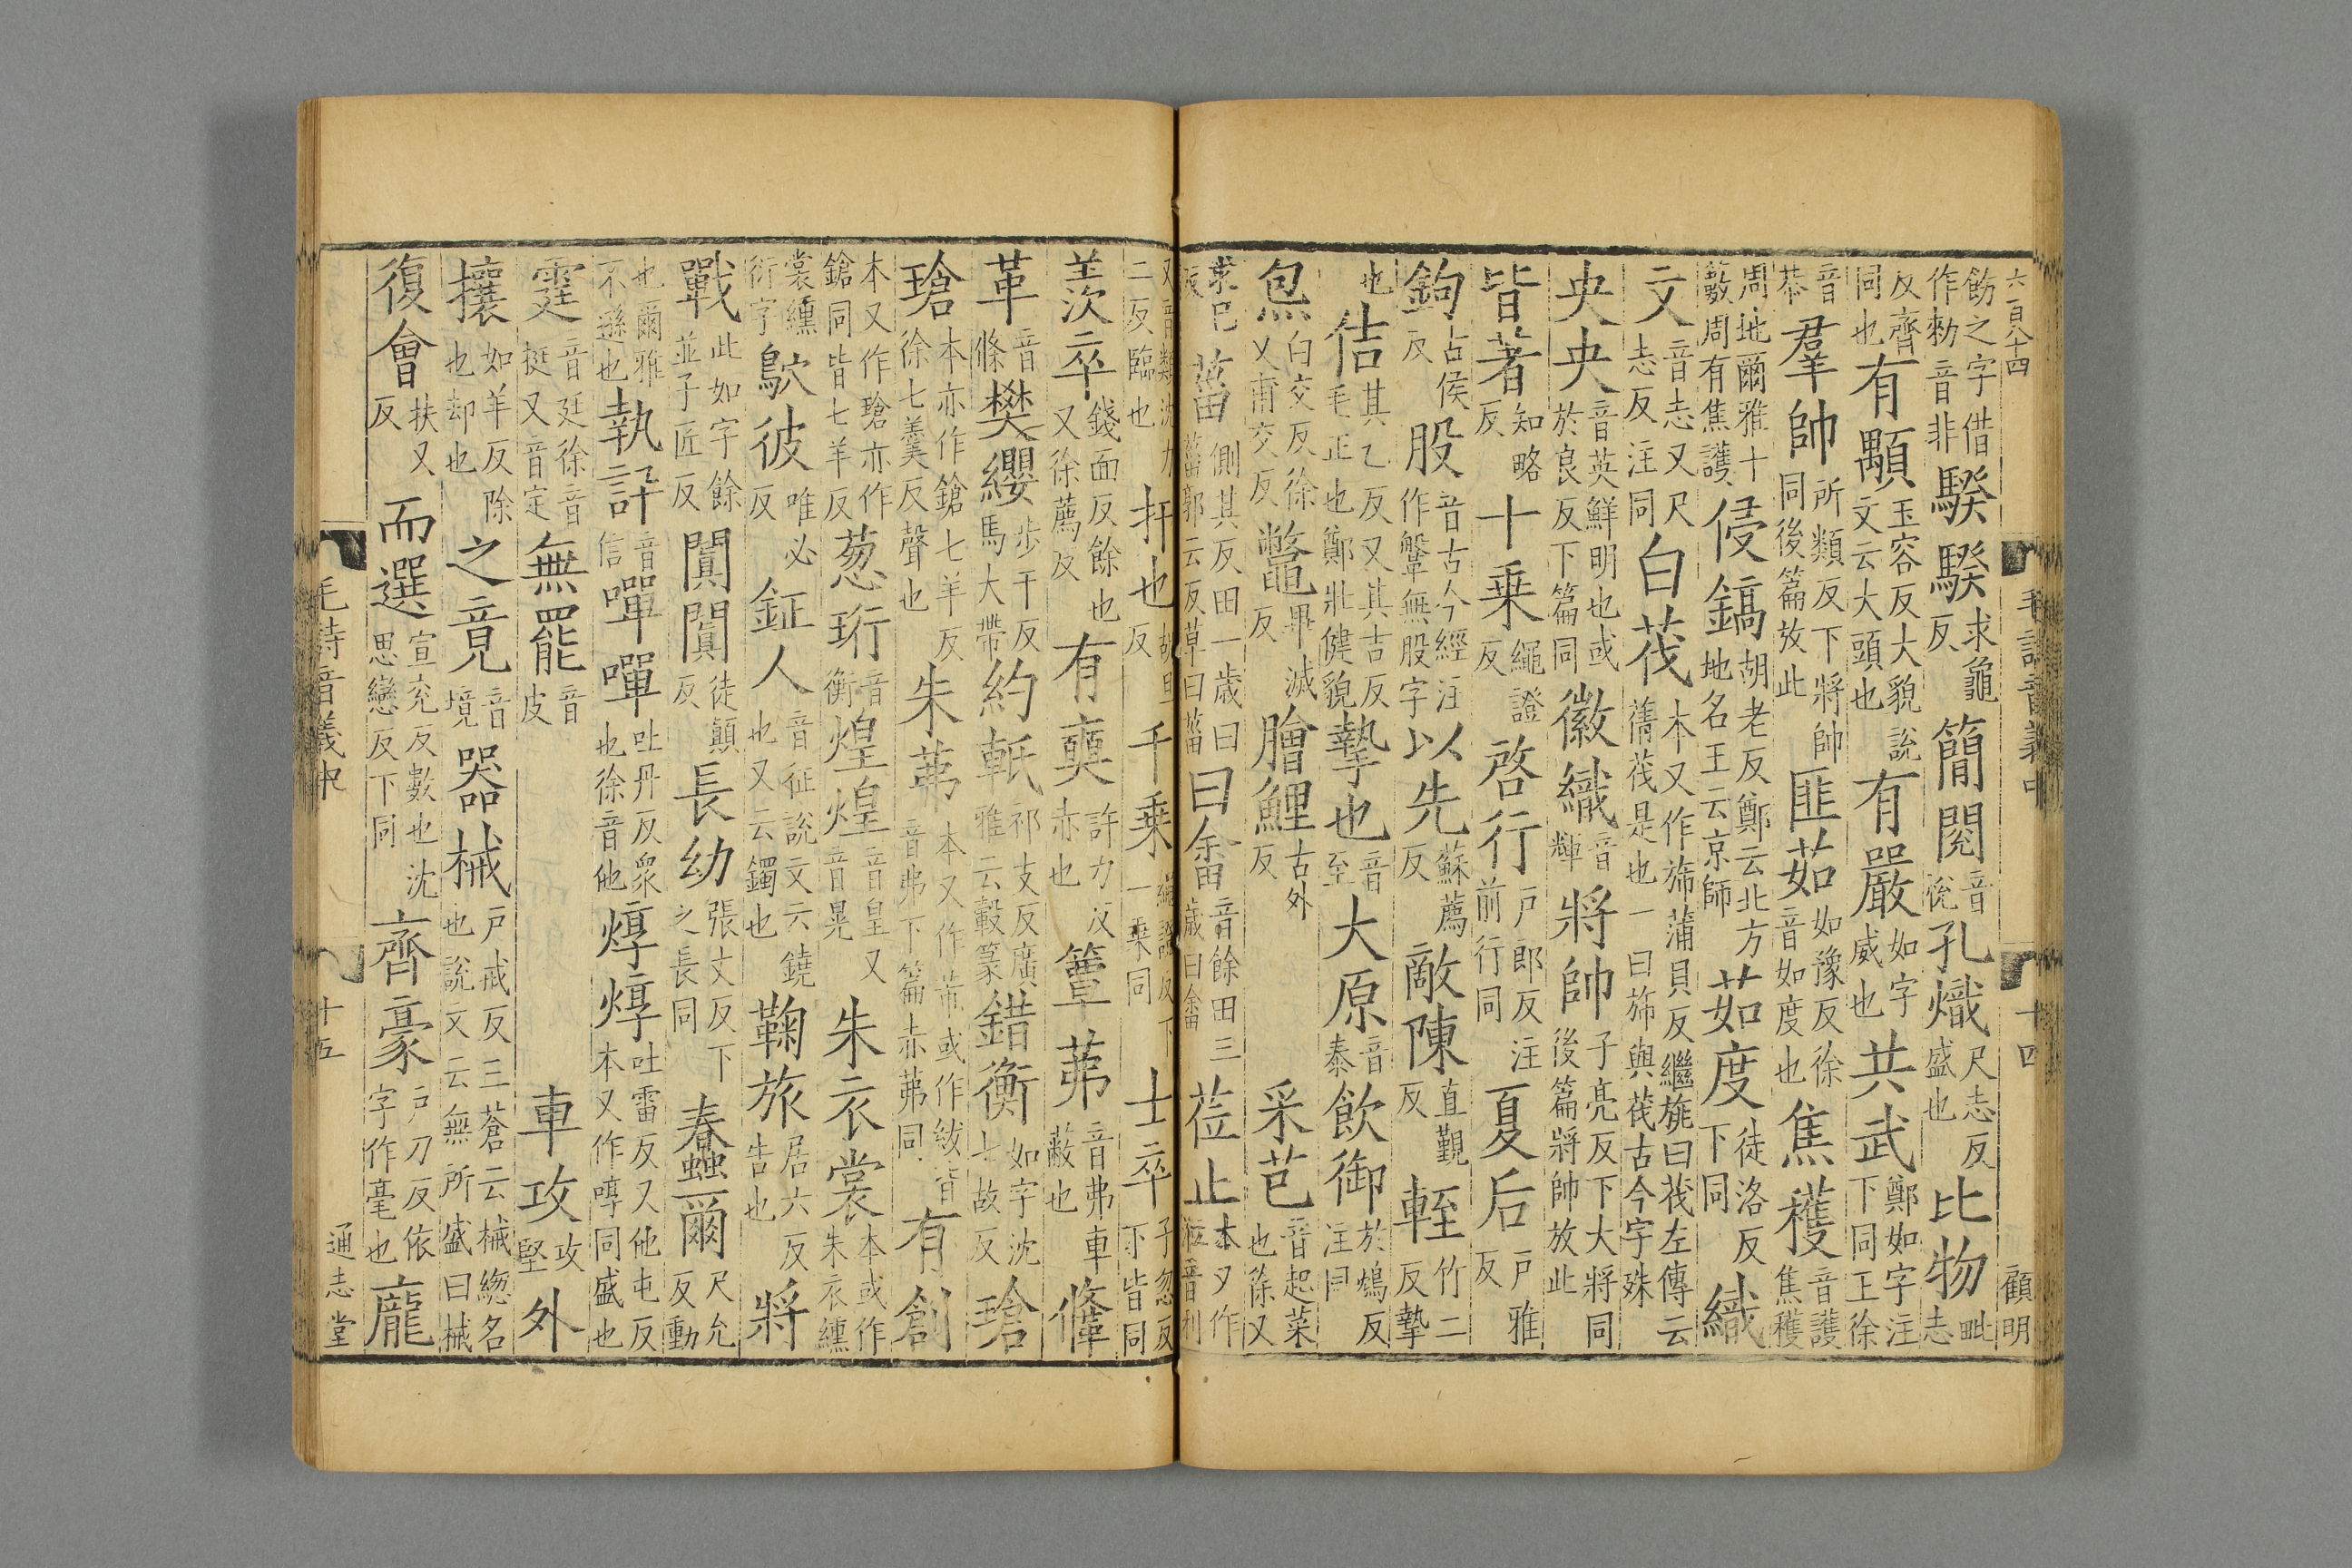 六百八十四 毛詩音義中 十四 顧明
飭之字借作勑音非騤騤求龜反簡閱音悅孔熾尺志反盛也比物毗志
反齊同也有顒玉容反大貌說文云大頭也有嚴如字威也共武鄭如字注下同王徐
音恭羣帥所類反下將帥同後篇放此匪茹如豫反徐音如度也焦穫音護焦穫
周地爾雅十藪周有焦護侵鎬胡老反鄭云北方地名王云京師茹度徒洛反下同織
文音志又尺志反注同白茷本又作斾蒲貝反繼旐曰茷左傳云蒨茷是也一曰斾與茷古今字殊
央央音英鮮明也或於良反下篇同徽織音輝將帥子亮反下大將同後篇將帥放此
皆著知略反十乗繩證反啓行戶郎反注前行同夏后戶雅反
鉤古侯反股音古今經注作鞶無股字以先蘇薦反敵陳直覲反輊竹二反摯
也佶其乙反又其吉反毛正也鄭壯健貌摯也音至大原音泰飲御於鴆反注同
炰白交反徐又甫交反鼈卑滅反膾鯉古外反采芑音起菜也徐又
求已反菑側其反田一歲曰菑郭云反草曰菑曰畬音餘田三歲曰畬莅止本又作涖音利
又音類沈力二反臨也扞也胡旦反千乗繩證反下一乗同士卒子忽反下皆同
羨卒錢面反餘也又徐薦反有奭許力反赤也簟茀音弗車蔽也鞗
革音條樊纓步干反馬大帶約軝祁支反廣雅云轂篆錯衡如字沈七故反瑲
瑲本亦作鎗七羊反徐七羹反聲也朱茀本又作芾或作紱皆音弗下篇赤茀同有創
本又作瑲亦作鎗同皆七羊反葱珩音衡煌煌音皇又音晃朱衣裳本或作朱衣纁
裳纁衍字鴥彼唯必反鉦人音征說文云鐃也又云鐲也鞠旅居六反告也將
戰此如字餘並子匠反闐闐徒顛反長幼張丈反下之長同蠢爾尺允反動
也爾雅不遜也執訊音信嘽嘽吐丹反衆也徐音他焞焞吐雷反又他屯反本又作啍同盛也
霆音廷徐音挺又音定無罷音皮 車攻攻堅外
攘如羊反除也却也之竟音境器械戶戒反三蒼云械緫名也說文云無所盛曰械
復會扶又反而選宣兖反數也沈思戀反下同齊豪戶刀反依字作毫也龐
毛詩音義中 十五 通志堂